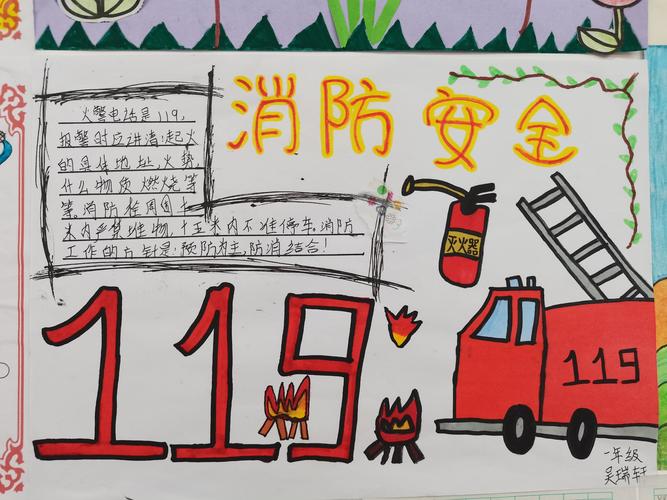 消防安全
火警电话是119.
报警时应讲清:起火
的具体地址,火势,
什么物质燃烧等
等。消防栓周围
米内严禁堆物,十五米内不准停车。消防
工作的方针是:预防为主,防消结合!
灭火器
119
119
一年级
吴瑞轩